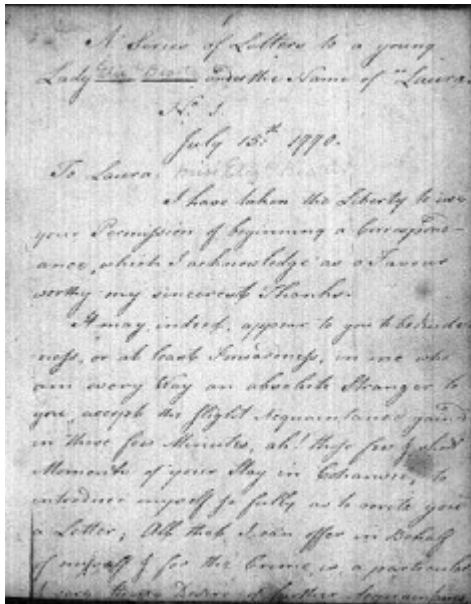 A Series of Letters to a young
Lady under the Name of "Laura.
No. 1.
July 15th 1790.
To Laura.
I have taken the Liberty to use
your Permission of beginning a Correspond-
ance, which I acknowledge as a Favour
worthy my sincerest Thanks.
It may, indeed, appear to you to be
ness, or at least in me who
am every Way an absolute Stranger to
you, accept the slight Acquaintance gained
in those few Minutes, ah! those few & short
Moments of your Stay in to
introduce myself so fully as to write you
a Letter; All that I can offer in Behalf
of myself & for the Crime is, a particular
& very Desire of further Acquaintance